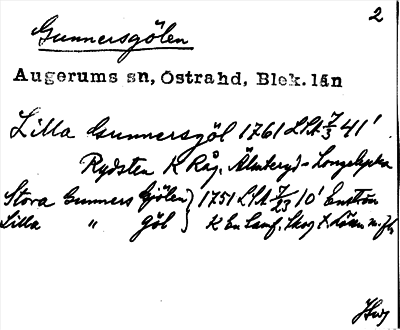 2
Gunnersgölen
Augerums sn, Östrahd, Blek. län
Lilla Gunnersgöl 1761 LSA 7/3 41'
Rydsten K Råg. Älmteryd - Longelycka
Stora Gunners Gjölen } 1751 LSA 7/23 10' Enström
Lilla " göl } K En Samf. Skog f. n. fl.